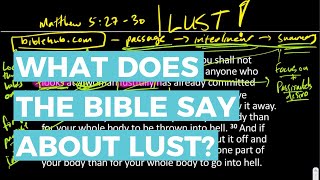 Matthew 5:27-30 LUST!
biblehub.com → passage → interlinear → summary
shall not
anyone who
Focus on
+
Passionate
desire
WHAT DOES
looks at a woman lustfully has already committed
THE BIBLE SAY
it away.
body than
for your whole body to be thrown into hell. 30 And if
ABOUT LUST?
it off and
one part of
your body than for your whole body to go into hell.